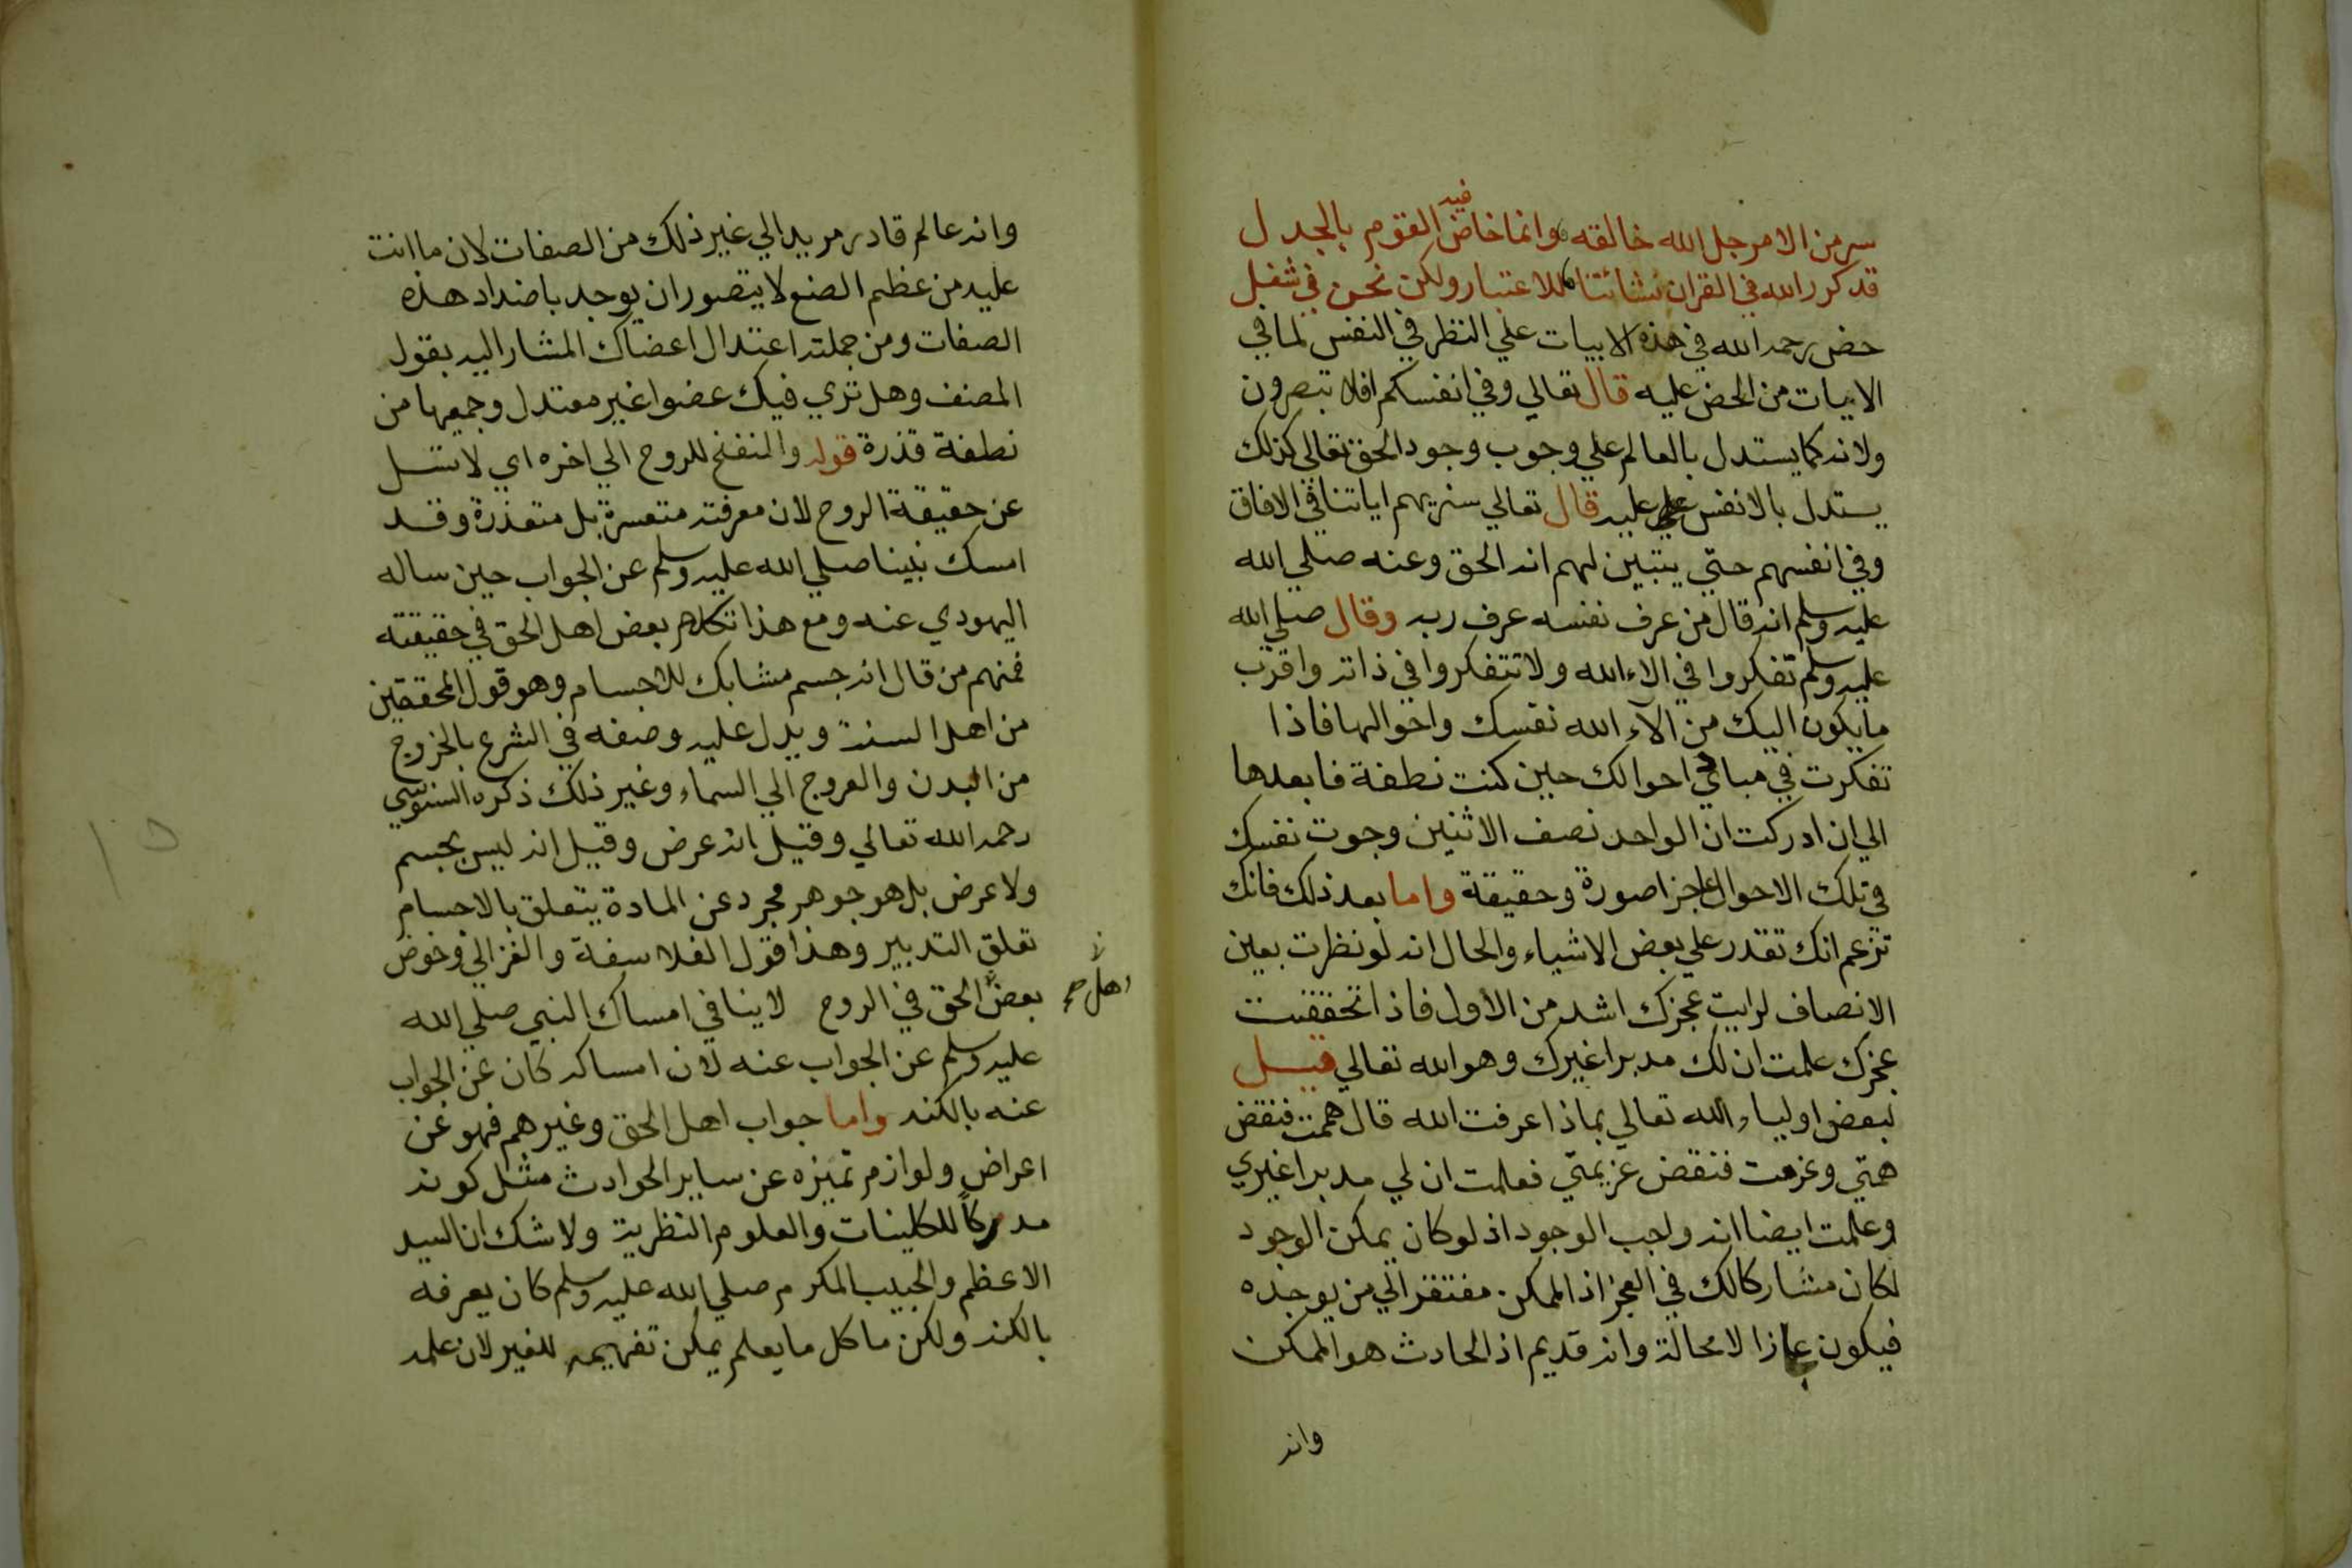 سر من الامر جل الله خالقه وانما خاض فيه القوم بالجدل
قد كرر الله في القران نشائتنا للاعتبار ولكن نحن في شغل
حض رحمه الله في هذه الابيات علي النظر في النفس لما في
الايات من الحض عليه قال تعالي وفي انفسكم افلا تبصرون
ولانه كما يستدل بالعالم علي وجوب وجود الحق تعالي كذلك
يستدل بالانفس عليه قال تعالي سنريهم اياتنا في الافاق
وفي انفسهم حتي يتبين لهم انه الحق وعنه صلي الله
عليه وسلم انه قال من عرف نفسه عرف ربه وقال صلي الله
عليه وسلم تفكروا في الاء الله ولا تتفكروا في ذاته واقرب
ما يكون اليك من الآء الله نفسك واحوالها فاذا
تفكرت في مبادي احوالك حين كنت نطفة فما بعدها
الي ان ادركت ان الواحد نصف الاثنين وجدت نفسك
في تلك الاحوال عاجزا صورة وحقيقة واما بعد ذلك فانك
تزعم انك تقدر علي بعض الاشياء والحال انه لو نظرت بعين
الانصاف لرايت عجزك اشد من الاول فاذا تحققت
عجزك علمت ان لك مدبرا غيرك وهو الله تعالي قيل
لبعض اولياء الله تعالي بماذا عرفت الله قال هممت فنقض
همتي وعزمت فنقض عزيمتي فعلمت ان لي مدبرا غيري
وعلمت ايضا انه واجب الوجود اذ لو كان يمكن الوجود
لكان مشاركا لك في العجز اذ الممكن مفتقر الي من يوجده
فيكون عاجزا لا محالة وانه قديم اذ الحادث هو الممكن
وانه
وانه عالم قادر مريد الي غير ذلك من الصفات لان ما انت
عليه من عظم الصنع لا يتصور ان يوجد باضداد هذه
الصفات ومن جملته اعتدال اعضاك المشار اليه بقول
المصنف وهل تري فيك عضوا غير معتدل وجميعها من
نطفة قذرة قوله والمنفخ للروح الي اخره اي لا تسل
عن حقيقة الروح لان معرفته متعسرة بل متعذرة وقد
امسك نبينا صلي الله عليه وسلم عن الجواب حين ساله
اليهودي عنه ومع هذا تكلم بعض اهل الحق في حقيقته
فمنهم من قال انه جسم مشابك للاجسام وهو قول المحققين
من اهل السنة ويدل عليه وصفه في الشرع بالخروج
من البدن والعروج الي السماء وغير ذلك ذكره السنوسي
رحمه الله تعالي وقيل انه عرض وقيل انه ليس بجسم
ولا عرض بل هو جوهر مجرد عن المادة يتعلق بالاجسام
تعلق التدبير وهذا قول الفلاسفة والغزالي وخوض
بعض الحق في الروح لا ينافي امساك النبي صلي الله
اهل صح
عليه وسلم عن الجواب عنه لان امساكه كان عن الجواب
عنه بالكنه واما جواب اهل الحق وغيرهم فهو عن
اعراض ولوازم تميزه عن ساير الحوادث مثل كونه
مدركاً للكليات والعلوم النظرية ولا شك ان السيد
الاعظم والحبيب المكرم صلي الله عليه وسلم كان يعرفه
بالكنه ولكن ما كل ما يعلم يمكن تفهيمه للغير لان علمه